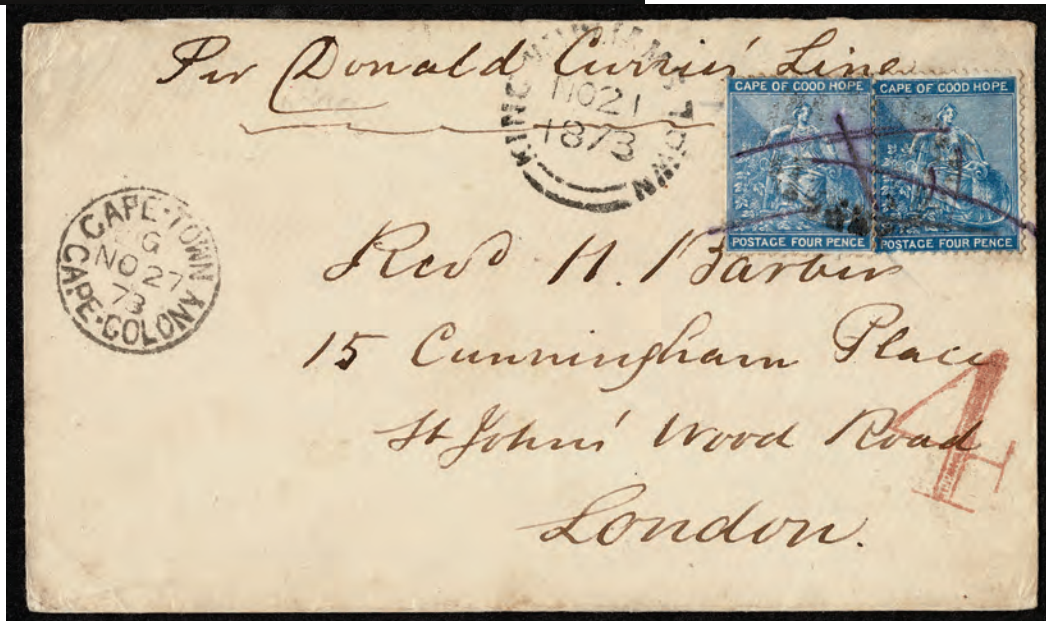 Per Donald Currie's Line
KING WILLIAM'S TOWN
NO 21
1873
CAPE OF GOOD HOPE
POSTAGE FOUR PENCE
CAPE OF GOOD HOPE
POSTAGE FOUR PENCE
CAPE·TOWN
G
NO 27
73
CAPE·COLONY
Revd H. Barber
15 Cunningham Place
St John's Wood Road
London.
4